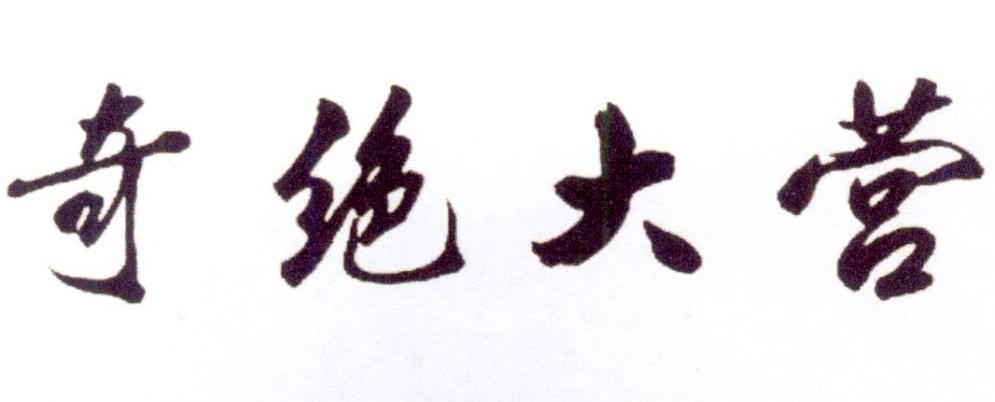 奇绝大营